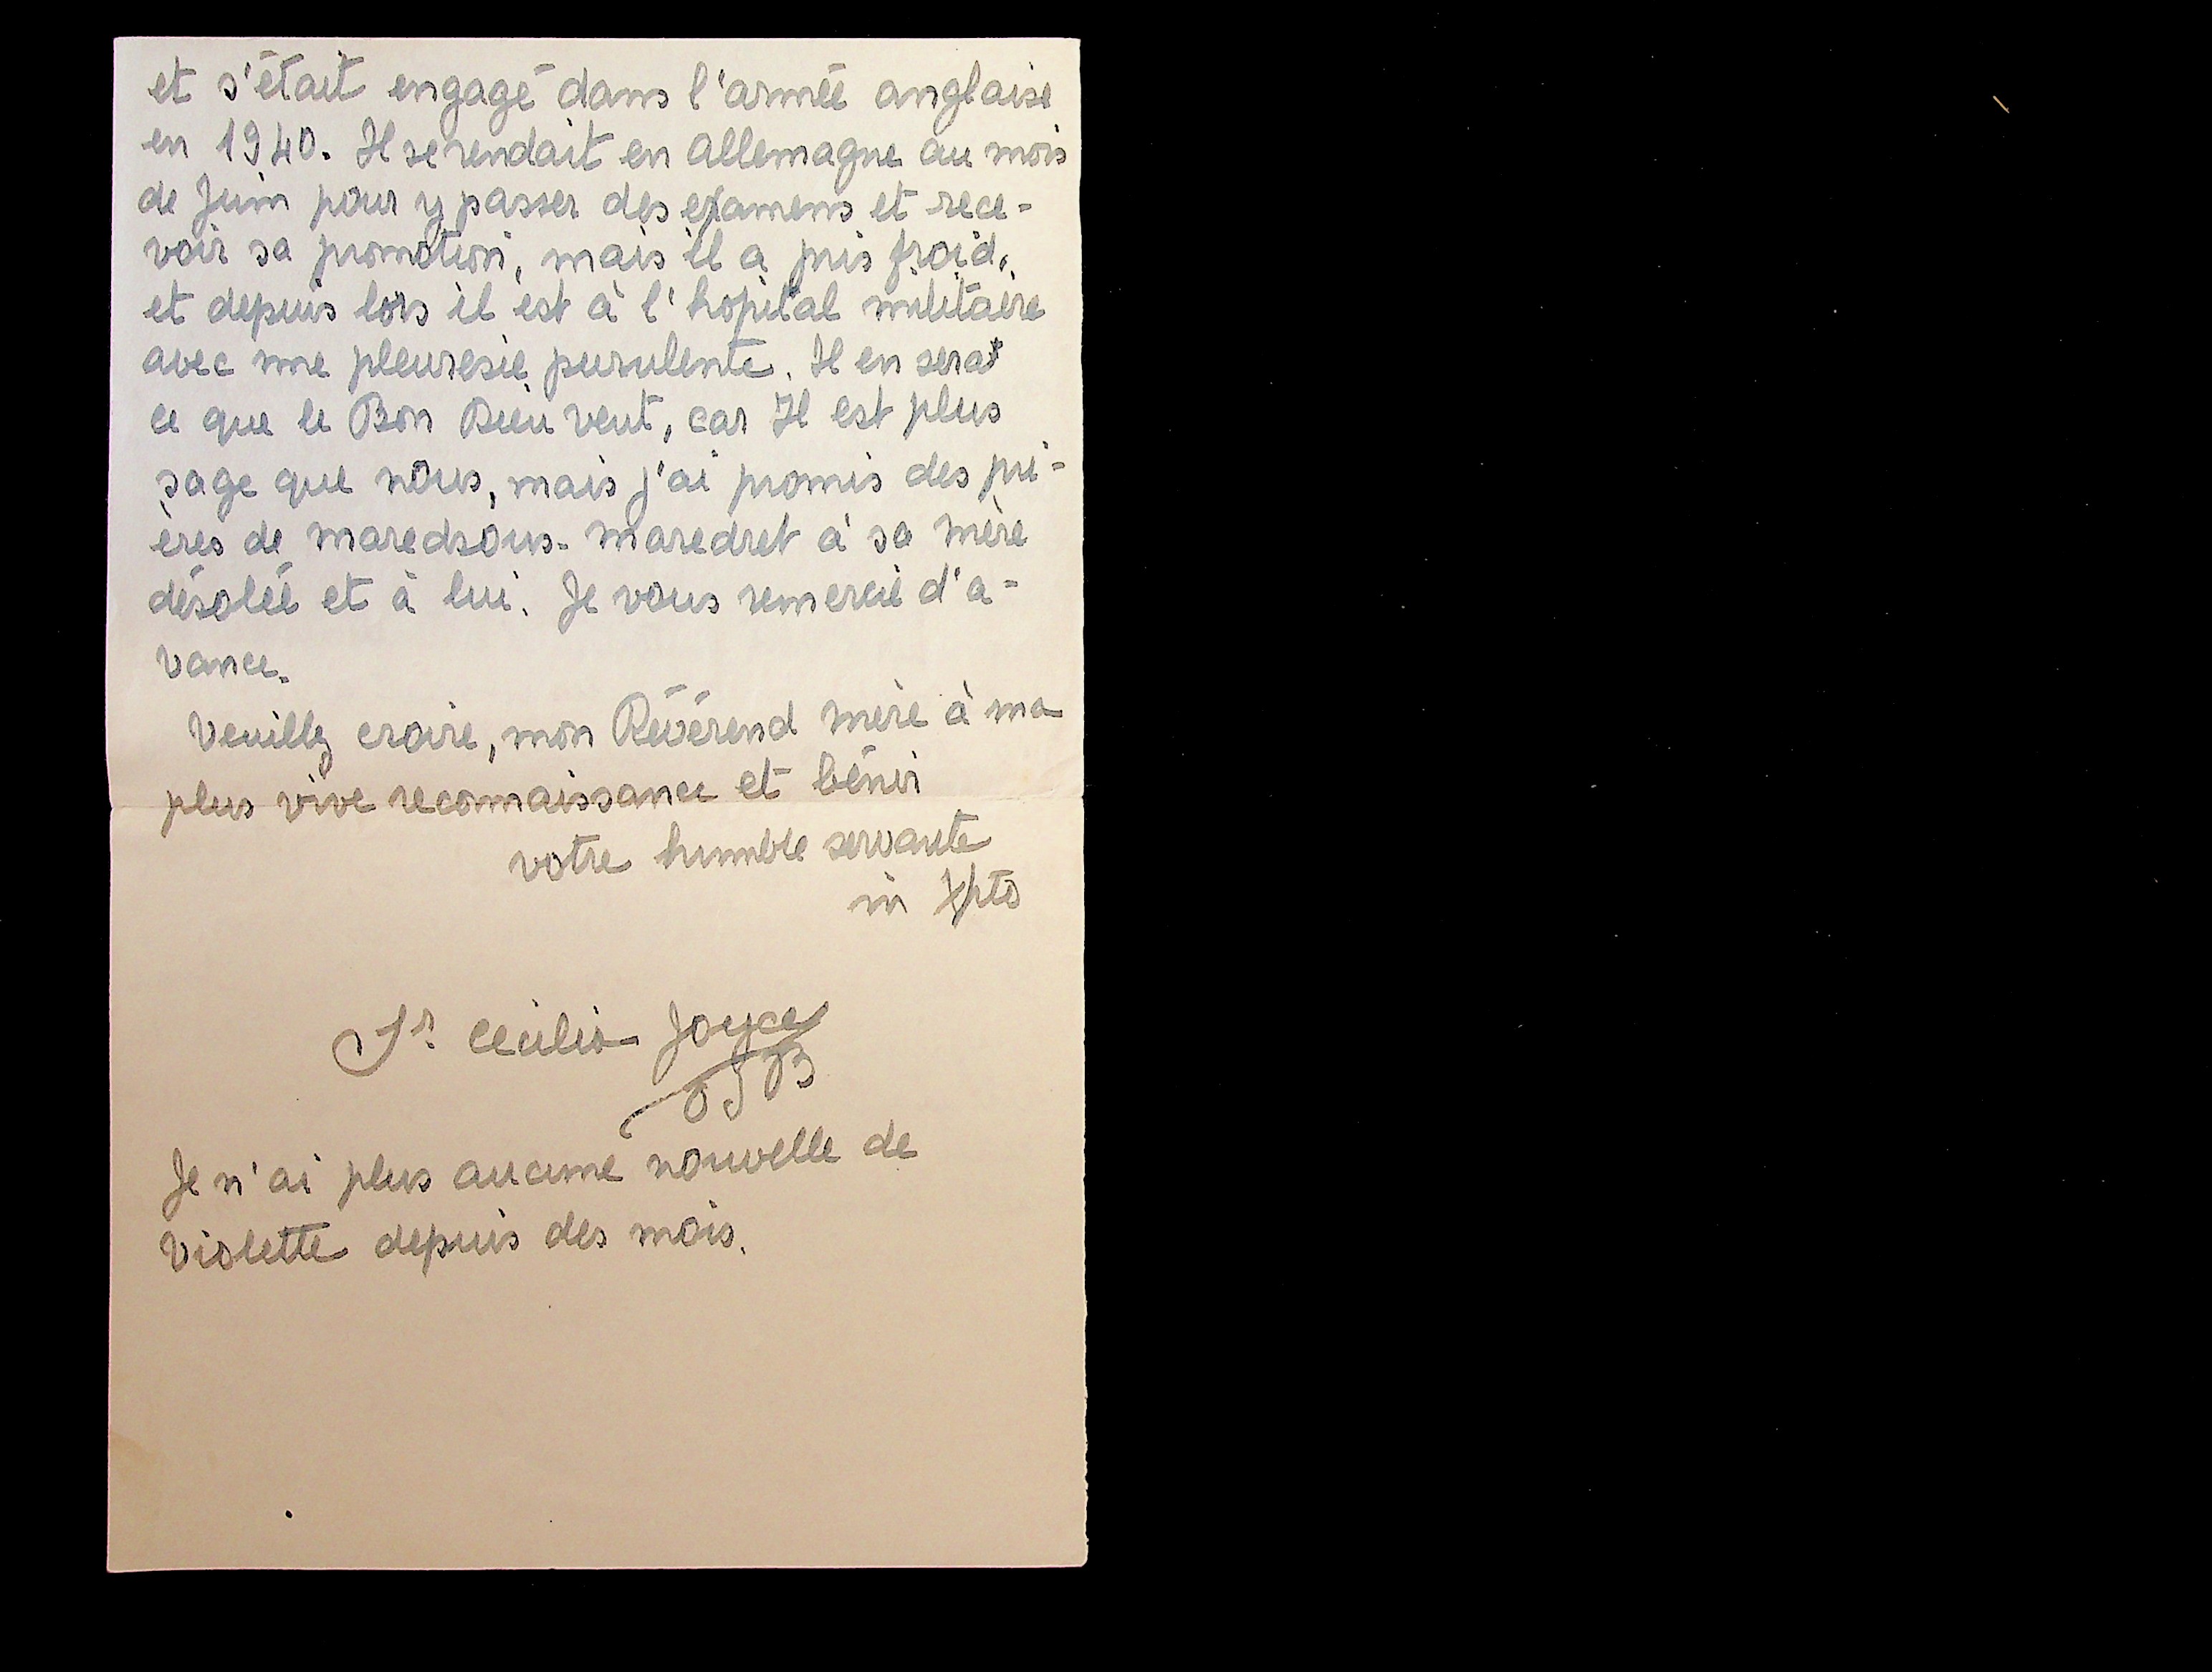 et s'était engagé dans l'armée anglaise
en 1940. Il se rendait en Allemagne au mois
de Juin pour y passer des examens et rece-
voir sa promotion, mais il a pris froid,
et depuis lors il est à l'hôpital militaire
avec une pleurésie purulente. Il en sera
ce que le Bon Dieu veut, car Il est plus
sage que nous, mais j'ai promis des pri-
ères de maredsous-maredret à sa mère
désolée et à lui. Je vous remercie d'a-
vance.
Veuillez croire, mon Révérend mère à ma
plus vive reconnaissance et bénir
votre humble servante
in Xpto
Sr Cecilia Joyce
OSB
Je n'ai plus aucune nouvelle de
Violette depuis des mois.